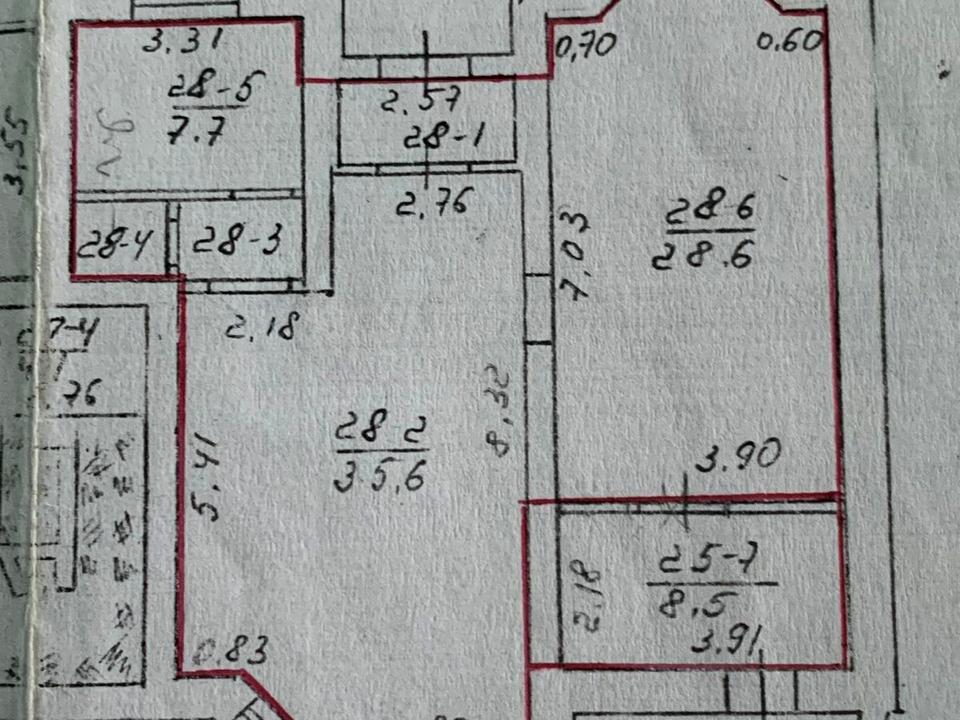 3.31
28-5
7.7
3,55
2.57
28-1
2.76
0,70
0.60
28-4
28-3
2,18
7.03
28 6
28.6
7-4
.76
28 2
35,6
8,32
5,41
3.90
25-7
8,5
2,18
3.91
0.83